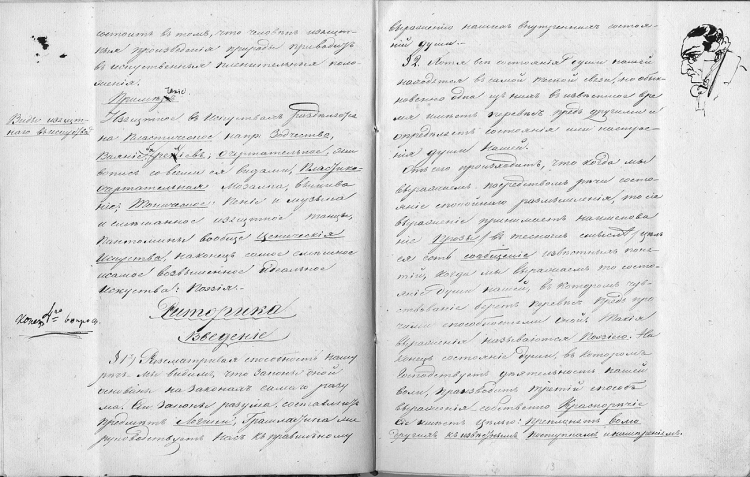 состоитъ въ томъ, что человѣкъ изящ-
ныя произведенія природы приводитъ
въ искуственныя плѣнительныя поло-
женія.
Примѣчаніе
Виды изящ-
наго въ искуствѣ
Изящное въ Искуствахъ раздѣляется
на Пластическое напр. Зодчество,
Ваяніе; очертательное, жи-
вопись со всѣми ея видами, Пластико-
очертательная Мозаика, вышива-
ніе; Тоническое: пѣніе и музыка
и смѣшанное изящное танцы,
Пантомимы вообще Сценическія
Искуства, наконецъ самое
и самое возвышенное идеальное
искуство: Поэзія.
Конецъ 4го вопроса
Риторика
Введеніе
§ 1) Разсматривая способность нашу
мы видимъ, что Законы оной
основаны на Законахъ самаго разу-
ма. Сіи Законы разума, составляютъ
предметъ Логики; Грамматика же
руководствуетъ насъ къ правильному
выраженію нашихъ внутреннихъ состоя-
ній души.
§ 2. Хотя всѣ состоянія души нашей
находятся въ самой тѣсной связи, но обык-
новенно одна изъ нихъ въ извѣстное вре-
мя имѣетъ перевѣсъ предъ другими и
состоянія или настрое-
нія души нашей.
Отъ сего происходитъ, что когда мы
выражаемъ посредствомъ рѣчи состо-
яніе спокойнаго размышленія, то сіе
выраженіе принимаетъ наименова-
ніе Прозы (въ тѣсномъ смыслѣ) цѣль
ея есть сообщеніе извѣстныхъ поня-
тій, когда мы выражаемъ то состо-
яніе души нашей, въ которомъ чув-
ствованіе беретъ перевѣсъ предъ про-
чими способностями оной Такія
выраженія называются Поэзіею. На-
конецъ состояніе души, въ которомъ
господствуетъ дѣятельность нашей
воли, производитъ третій способъ
выраженія собственно Краснорѣчіе
Оно имѣетъ цѣлью: преклонять волю
другихъ къ извѣстнымъ поступкамъ и намѣреніямъ.